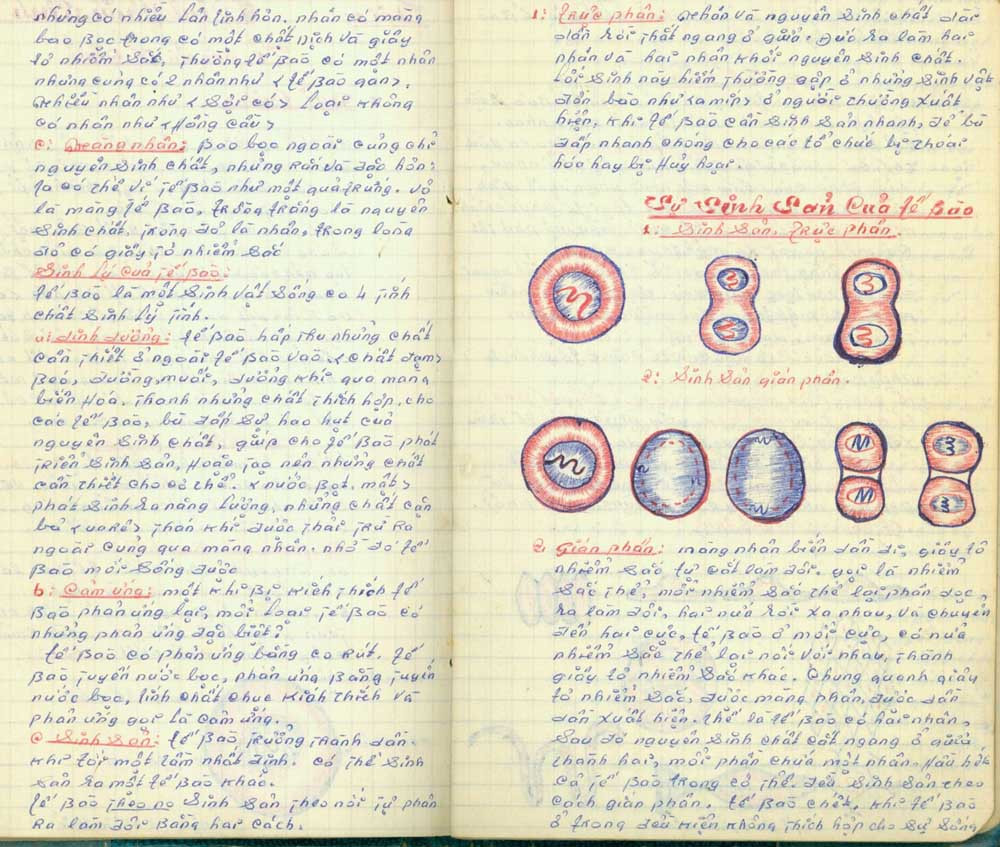 nhưng có nhiều lần tinh hỏn. phần có màng
bao bọc trong có một chất dịch và giây
tơ nhiễm sắc, thường tế bào có một nhân
nhưng cũng có 2 nhân như < tế bào gan>
nhiều nhân như < sợi cơ> loại không
có nhân như < Hồng cầu>
c: Màng nhân: Bao bọc ngoài cùng chỉ
nguyên sinh chất, nhưng rắn và đặc hỏn:
ta có thể ví tế bào như một quả trứng. vỏ
là màng tế bào, tròng trắng là nguyên
sinh chất, trong đỏ là nhân, trong lòng
đỏ có giây tơ nhiễm sắc
Sinh lý của tế bào:
tế bào là một sinh vật sống có 4 tính
chất sinh lý tính.
a: dinh dưỡng: tế bào hấp thu những chất
cần thiết ở ngoài tế bào vào < chất đạm>
béo, đường, muối, dưỡng khí qua màng
biến hóa. thành những chất thích hợp, cho
các tế bào, bù đắp sự hao hụt của
nguyên sinh chất, giúp cho tế bào phát
triển sinh sản, hoặc tạo nên những chất
cần thiết cho cơ thể. < nước bọt. mật>
phát sinh ra năng lượng. những chất cặn
bã < uarê> thán khí được thải trừ ra
ngoài cũng qua màng nhân. nhờ đó tế
bào mới sống được
b: Cảm ứng: một khi bị kích thích tế
bào phản ứng lại, mỗi loại tế bào có
những phản ứng đặc biệt:
tế bào có phản ứng bằng co rút. tế
bào tuyến nước bọc, phản ứng bằng tuyến
nước bọc, tính chất chục kích thích và
phản ứng gọi là cảm ứng.
c Sinh Sản: tế bào trưởng thành dần.
khi tới một tầm nhất định. có thể sinh
sản ra một tế bào khác.
tế bào theo no sinh sản theo nối tự phân
ra làm đôi bằng hai cách.
1: Trực phân: nhân và nguyên sinh chất dài
dần rồi thắt ngang ở giữa. đứt ra làm hai
phần và hai nhân khối nguyên sinh chất.
lối sinh này hiếm thường gặp ở những sinh vật
đơn bào như < amíp> ở người thường xuất
hiện, khi tế bào cần sinh sản nhanh, để bù
đắp nhanh chóng cho các tổ chức bị thoái
hóa hay bị hủy hoại.
Sự Sinh Sản Của tế Bào
1: Sinh Sản. trực phân.
2: Sinh Sản gián phân.
2: Gián phân: màng nhân biến dần đi, giây tơ
nhiễm sắc tự cắt làm đôi. gọi là nhiễm
sắc thể, mỗi nhiễm sắc thể lại phân dọc,
ra làm đôi, hai nửa rời xa nhau, và chuyển
đến hai cực, tế bào ở mỗi cực, có nửa
nhiễm sắc thể lại nối với nhau, thành
giây tơ nhiễm sắc khác. Chung quanh giây
tơ nhiễm sắc, được màng nhân, được dần
dần xuất hiện. thế là tế bào có hai nhân,
sau đó nguyên sinh chất cắt ngang ở giữa
thành hai, mỗi phần chứa một nhân. hầu hết
cả tế bào trong cơ thể. đều sinh sản theo
cách gián phân. tế bào chết. khi tế bào
ở trong đều kiện không thích hợp cho sự sống